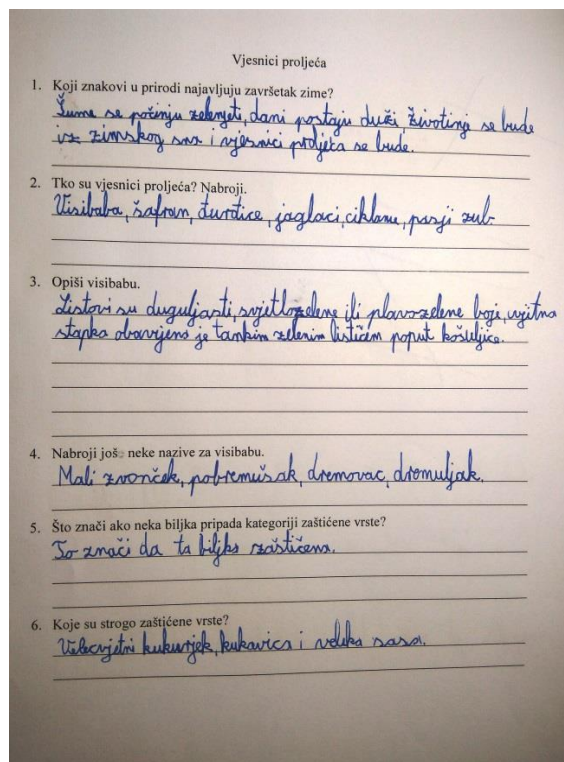 Vjesnici proljeća
1. Koji znakovi u prirodi najavljuju završetak zime?
Šume se počinju zelenjeti, dani postaju duži, životinje se bude
iz zimskog sna i vjesnici proljeća se bude.
2. Tko su vjesnici proljeća? Nabroji.
Visibaba, šafran, đurđice, jaglaci, ciklame, pasji zub.
3. Opiši visibabu.
Listovi su duguljasti, svjetlozelene ili plavozelene boje, cvjetna
stapka obavijena je tankim zelenim listićem poput košuljice.
4. Nabroji još neke nazive za visibabu.
Mali zvonček, pobremušak, dremovac, dromuljak.
5. Što znači ako neka biljka pripada kategoriji zaštićene vrste?
To znači da ta biljka zaštićena.
6. Koje su strogo zaštićene vrste?
Velecvjetni kukurjek, kukavica i velika sasa.